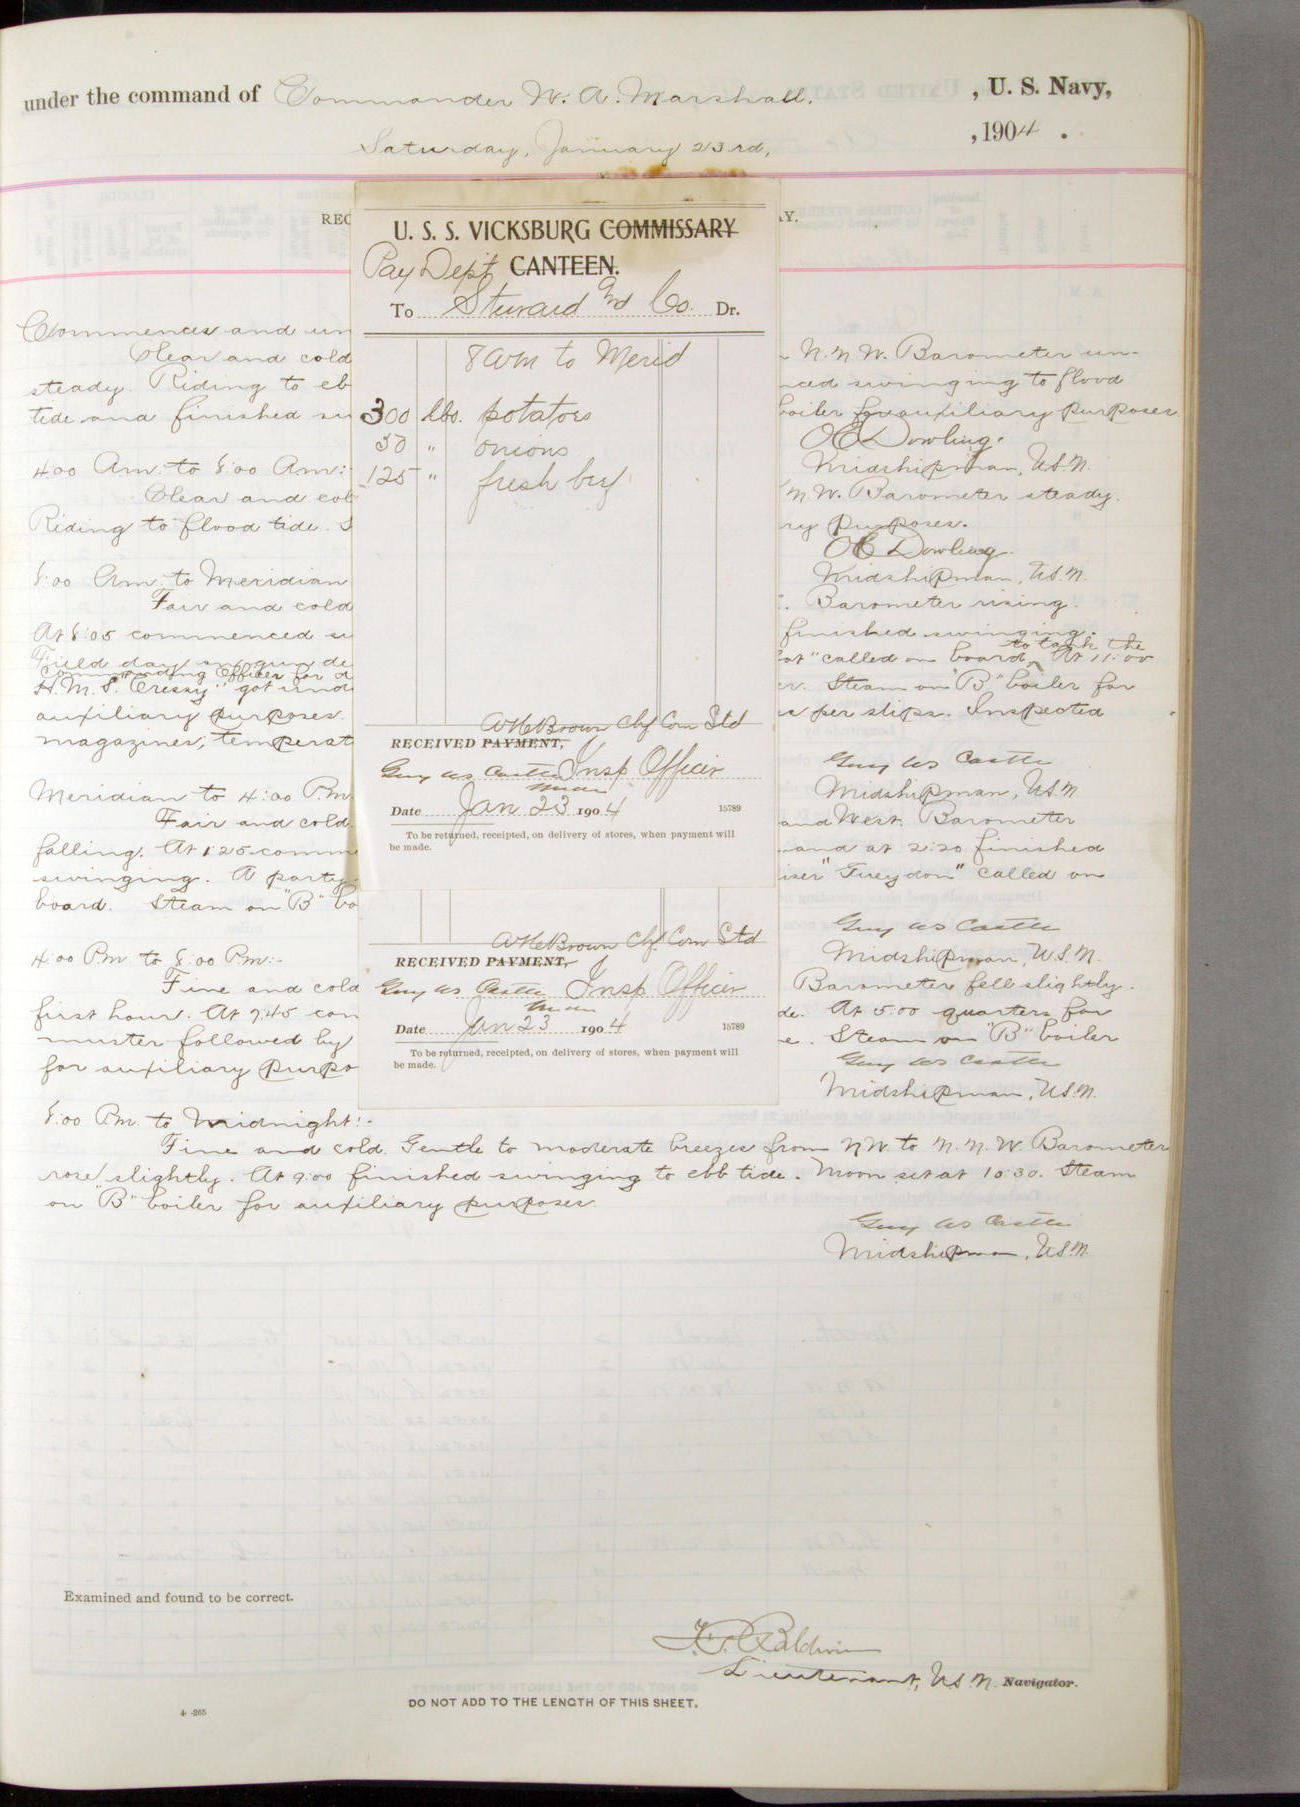 under the command of Commander W. A. Marshall, , U. S. Navy,
Saturday, January 23rd, , 1904 .
REC
AY.
U. S. S. VICKSBURG COMMISSARY
Pay Dept CANTEEN.
To Steward and Co. Dr.
8 am to Merid
300 lbs. potatoes
50 " onions
125 " fresh beef
A H Brown Chf Com Std
RECEIVED PAYMENT,
Guy W S Castle Insp Officer
Date Jan 23 1904 15789
To be returned, receipted, on delivery of stores, when payment will
be made.
A H Brown Chf Com Std
RECEIVED PAYMENT,
Guy W S Castle Insp Officer
Date Jan 23 1904 15789
To be returned, receipted, on delivery of stores, when payment will
be made.
Commences and un
Clear and cold N.N.W. Barometer un-
steady. Riding to eb nced swinging to flood
tide and finished sw boiler for auxiliary purposes
O C Dowling.
Midshipman, U.S.N.
4:00 Am. to 8:00 Am:-
Clear and col N.W. Barometer steady.
Riding to flood tide. S ry purposes.
O C Dowling.
Midshipman, U.S.N.
8:00 Am. to Meridian
Fair and cold . Barometer rising.
At 8:05 commenced sw finished swinging.
Field day on gun de at" called on board to take the
Commanding Officer for d At 11:00
H.M.S. "Cressy" got und er. Steam on "B" boiler for
auxiliary purposes. s per slips. Inspected
magazines, temperat
Guy W S Castle
Midshipman, U.S.N
Meridian to 4:00 P.M.
Fair and cold. and West. Barometer
falling. At 1:25 comm and at 2:20 finished
swinging. A party iser "Gueydon" called on
board. Steam on "B" bo
Guy W S Castle
Midshipman, U.S.N.
4:00 P.m to 8:00 P.m:-
Fine and cold Barometer fell slightly.
first hour. At 7:45 com de. At 5:00 quarters for
muster followed by e. Steam on "B" boiler
for auxiliary purpo
Guy W S Castle
Midshipman, U.S.N.
8:00 P.m. to Midnight:-
Fine and cold. Gentle to moderate breezes from NW. to N.N.W. Barometer
rose slightly. At 9:00 finished swinging to ebb tide. Moon set at 10:30. Steam
on "B" boiler for auxiliary purposes.
Guy W S Castle
Midshipman, U.S.N.
Examined and found to be correct.
Baldwin
Lieutenant, U.S.N. Navigator.
DO NOT ADD TO THE LENGTH OF THIS SHEET.
4-265